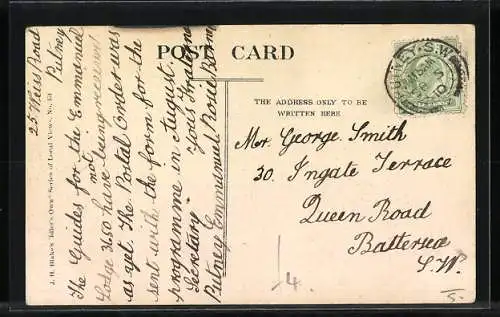 POST CARD
THE ADDRESS ONLY TO BE
WRITTEN HERE
Mr. George Smith
30. Ingate Terrace
Queen Road
Battersea
S.W.
PUTNEY. S.W.
25 Weiss Road
Putney
The Guides for the Emmanuel
Lodge not have being received
as yet. The Postal Order was
sent with the form for the
programme in August.
Yours
Secretary
Putney Emmanuel
4.
5-
J. H. Blake's "Idler's Own" Series of Local Views. No.